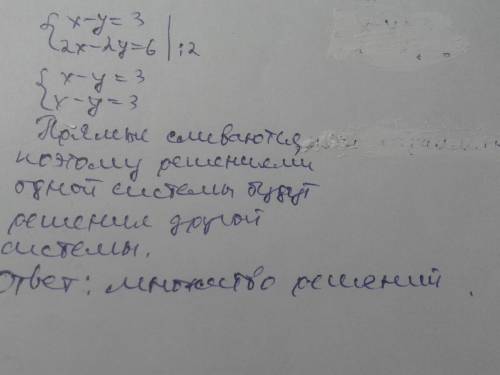 { x-y=3
{ 2x-2y=6 | :2
{ x-y=3
{ x-y=3
Прямые сливаются,
поэтому решениями
одной системы будут
решения другой
системы.
Ответ: множество решений.